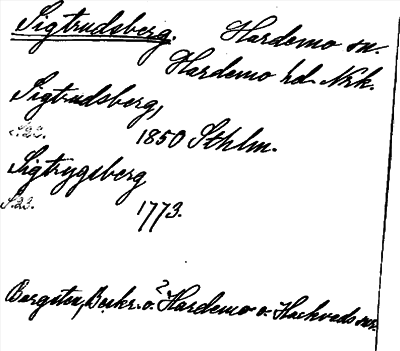 Sigtrudsberg. Hardemo sn.
Hardemo hd. Nrk.
Sigtrudsberg,
1850 Sthlm.
Sigtrygsberg
1773.
Bergsten, Beskr. o. Hardemo o. Hackvads snr.